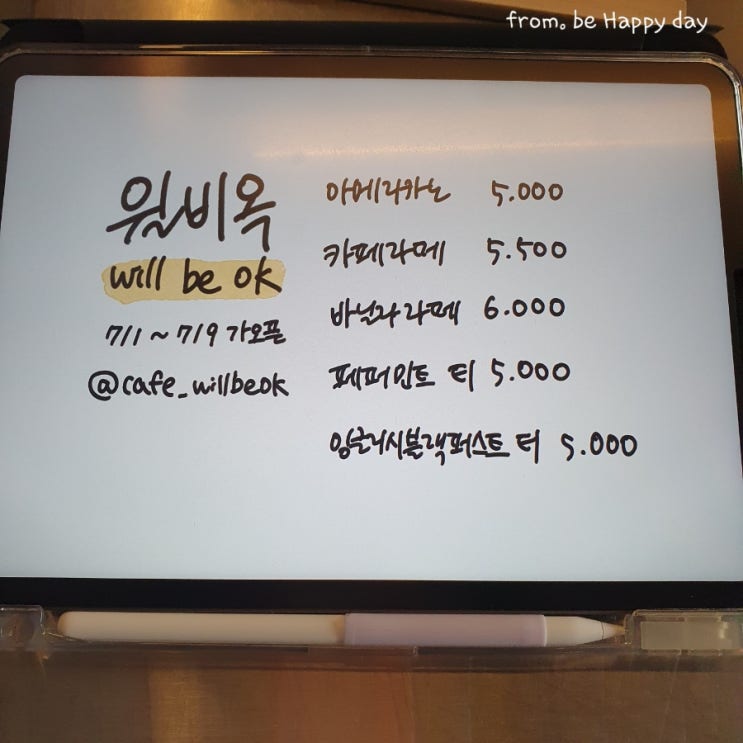 from. be Happy day
윌비옥
will be ok
7/1 ~ 7/9 가오픈
@cafe_willbeok
아메리카노 5.000
카페라떼 5.500
바닐라 라떼 6.000
페퍼민트 티 5.000
잉글리시블랙퍼스트 티 5.000